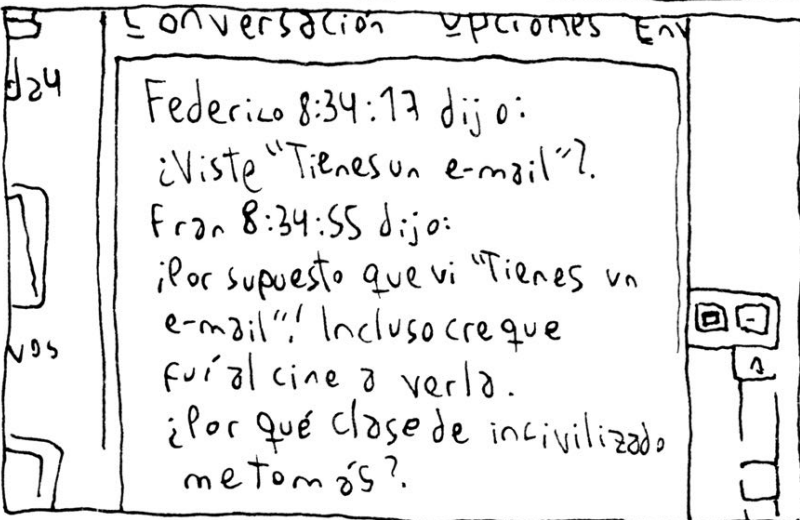 Conversación Opciones Env
day
Federico 8:34:17 dijo:
¿Viste "Tienes un e-mail"?.
Fran 8:34:55 dijo:
¡Por supuesto que vi "Tienes un
e-mail"! Incluso cre que
fuí al cine a verla.
vos
¿Por qué clase de incivilizado
me tomás?.